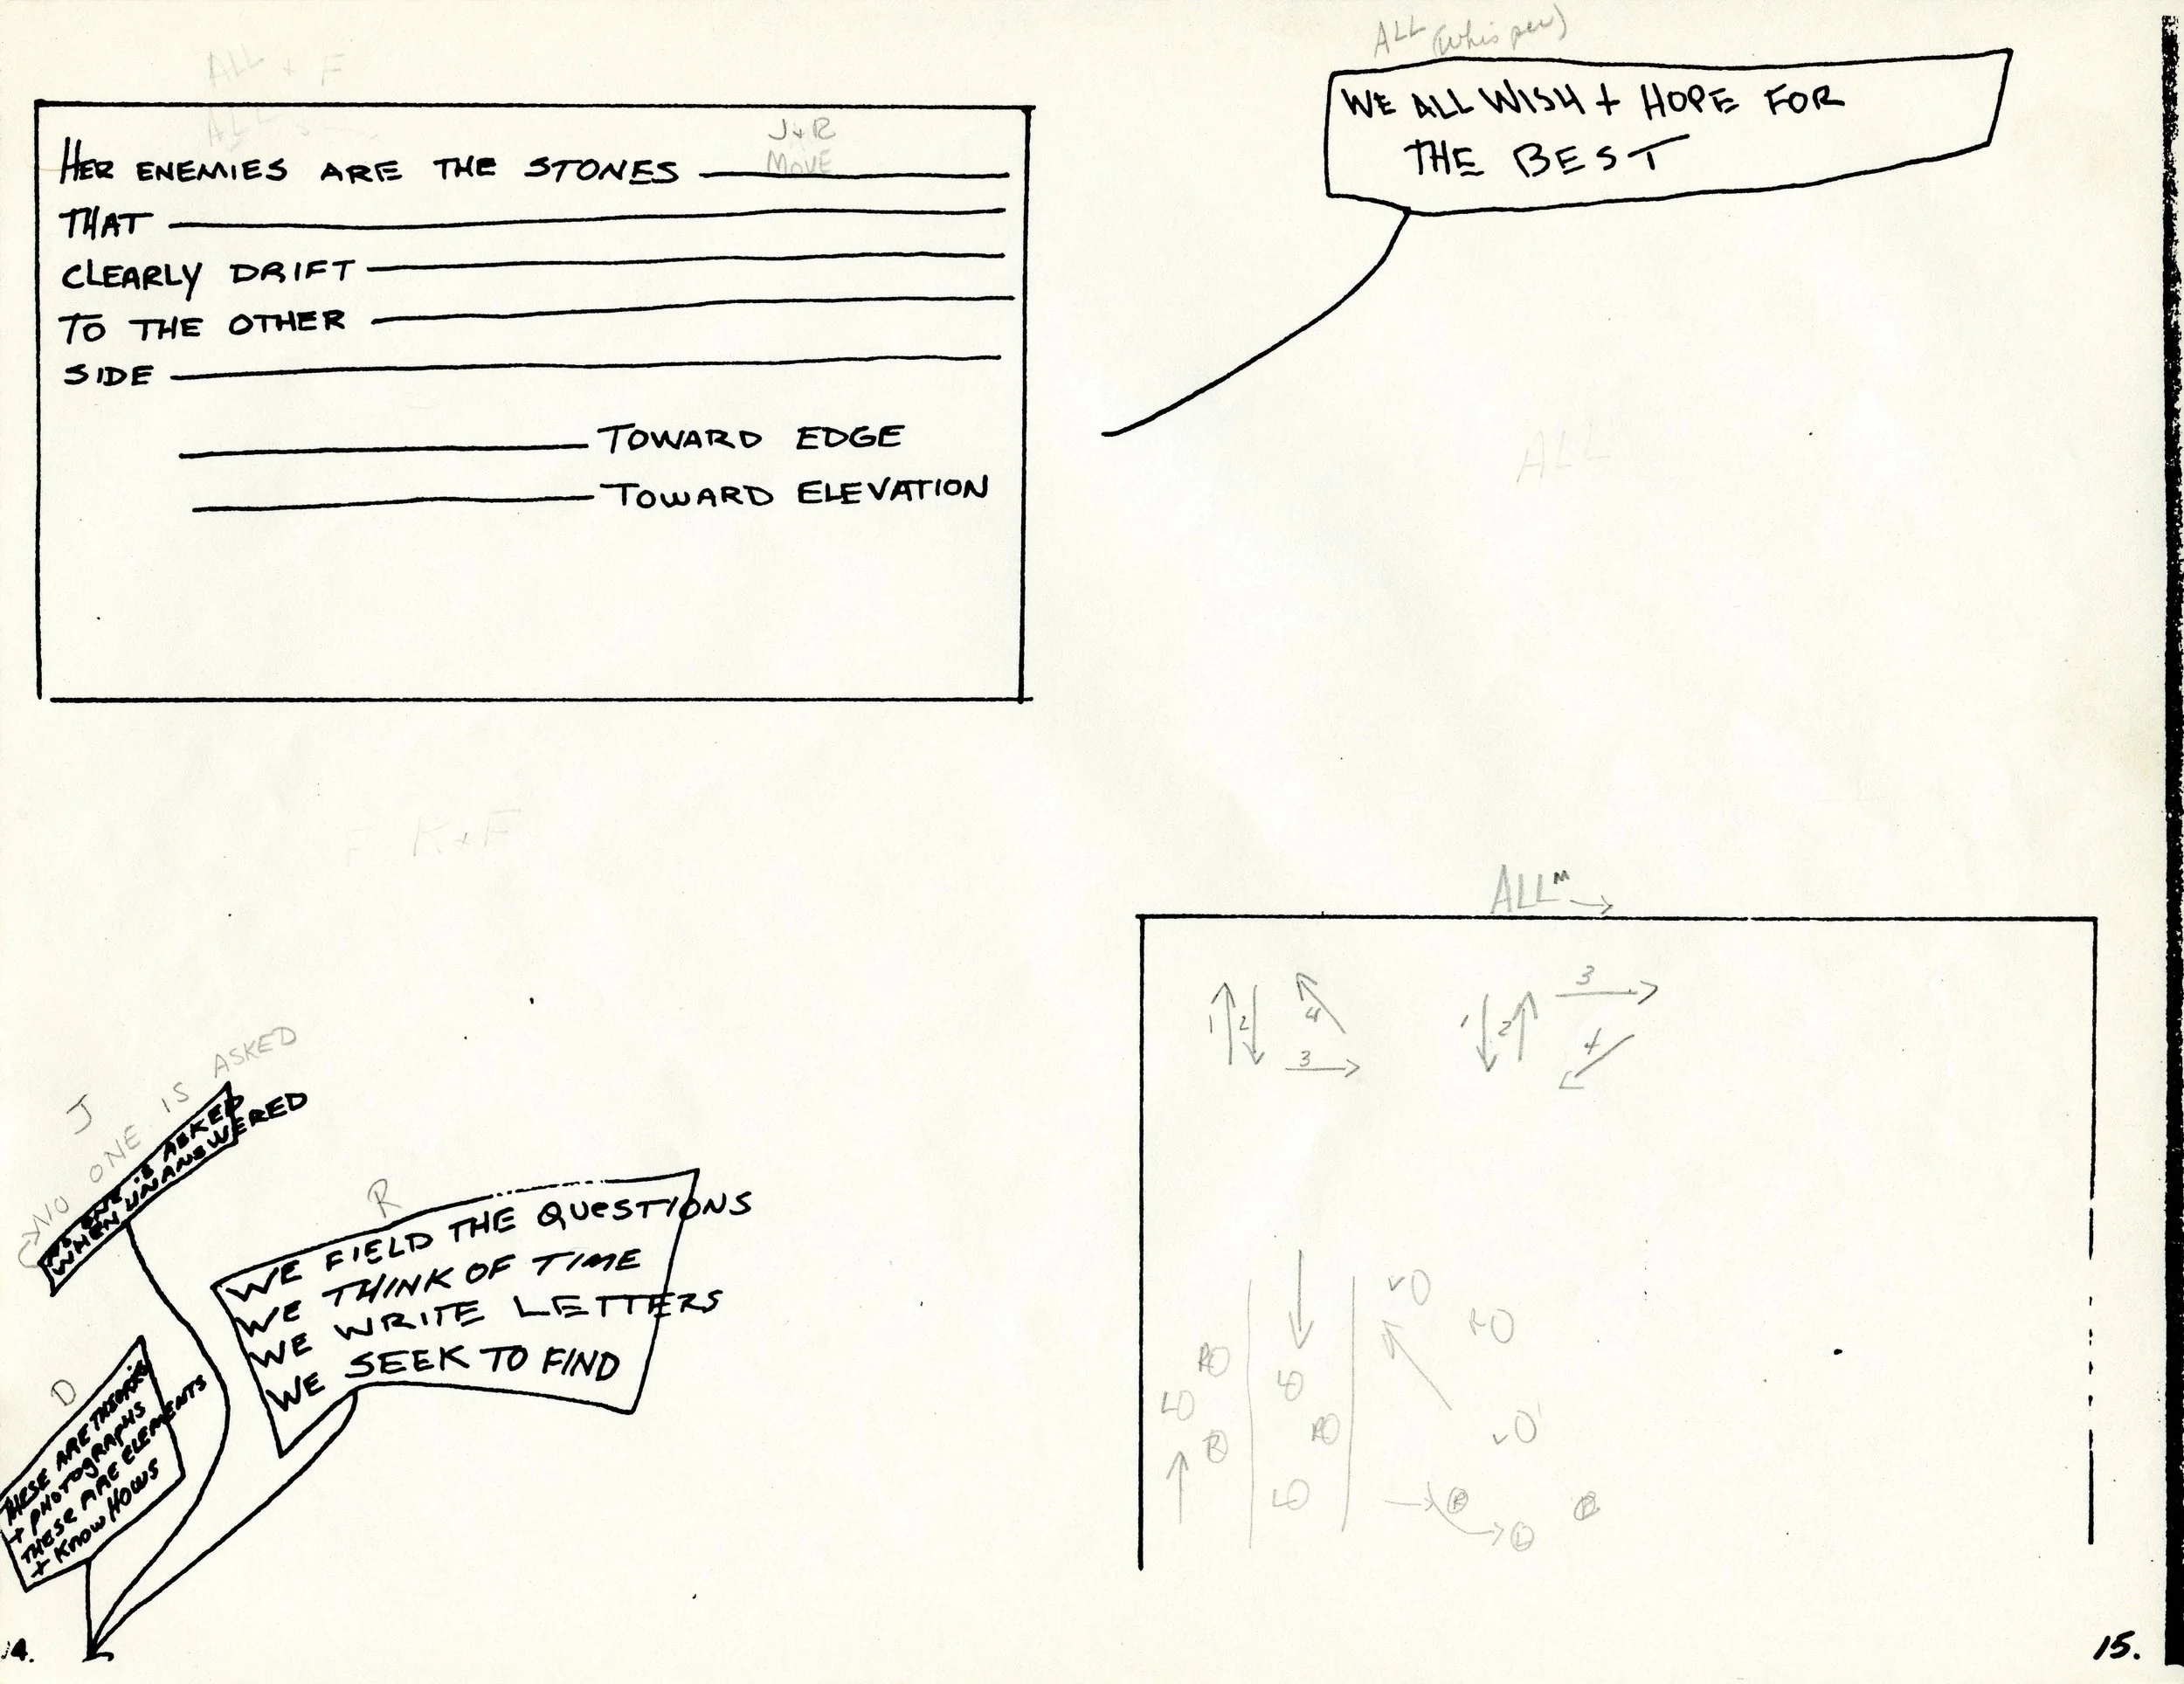 ALL + F
ALL
J+R
MOVE
HER ENEMIES ARE THE STONES
THAT
CLEARLY DRIFT
TO THE OTHER
SIDE
TOWARD EDGE
TOWARD ELEVATION
F K+F
J
NO ONE IS ASKED
NO ONE IS ASKED
WHEN UNANSWERED
R
WE FIELD THE QUESTIONS
WE THINK OF TIME
WE WRITE LETTERS
WE SEEK TO FIND
D
THESE ARE THEORIES
+ PHOTOGRAPHS
THESE ARE ELEMENTS
+ KNOW HOWS
14.
ALL (whisper)
WE ALL WISH + HOPE FOR
THE BEST
ALL
ALL M
1 2 4 3
1 2 3 4
15.